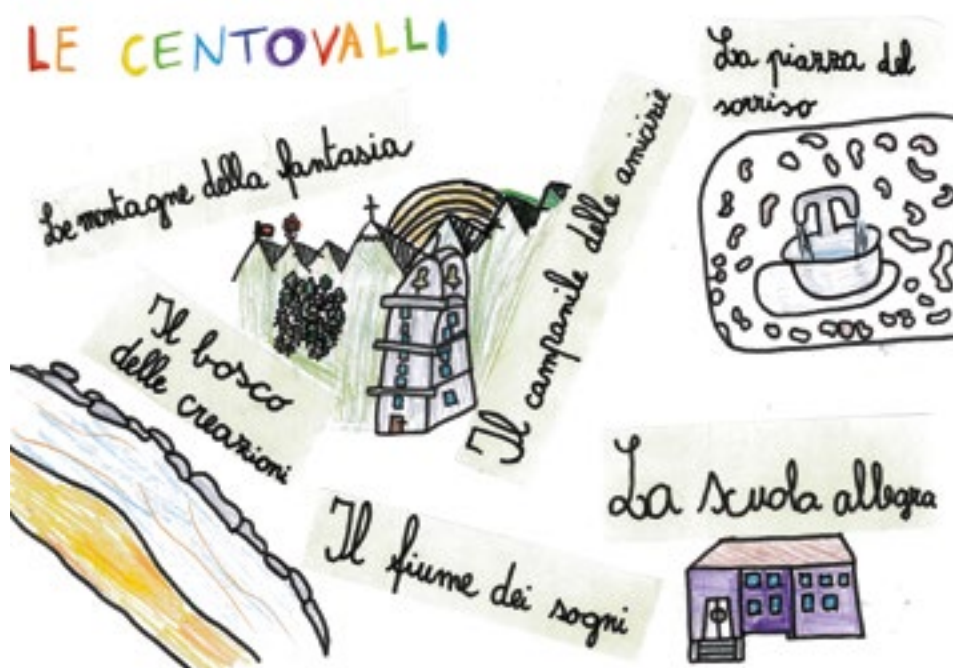 LE CENTOVALLI
La piazza del
sorriso
Le montagne della fantasia
Il campanile delle amicizie
Il bosco
delle creazioni
La scuola allegra
Il fiume dei sogni